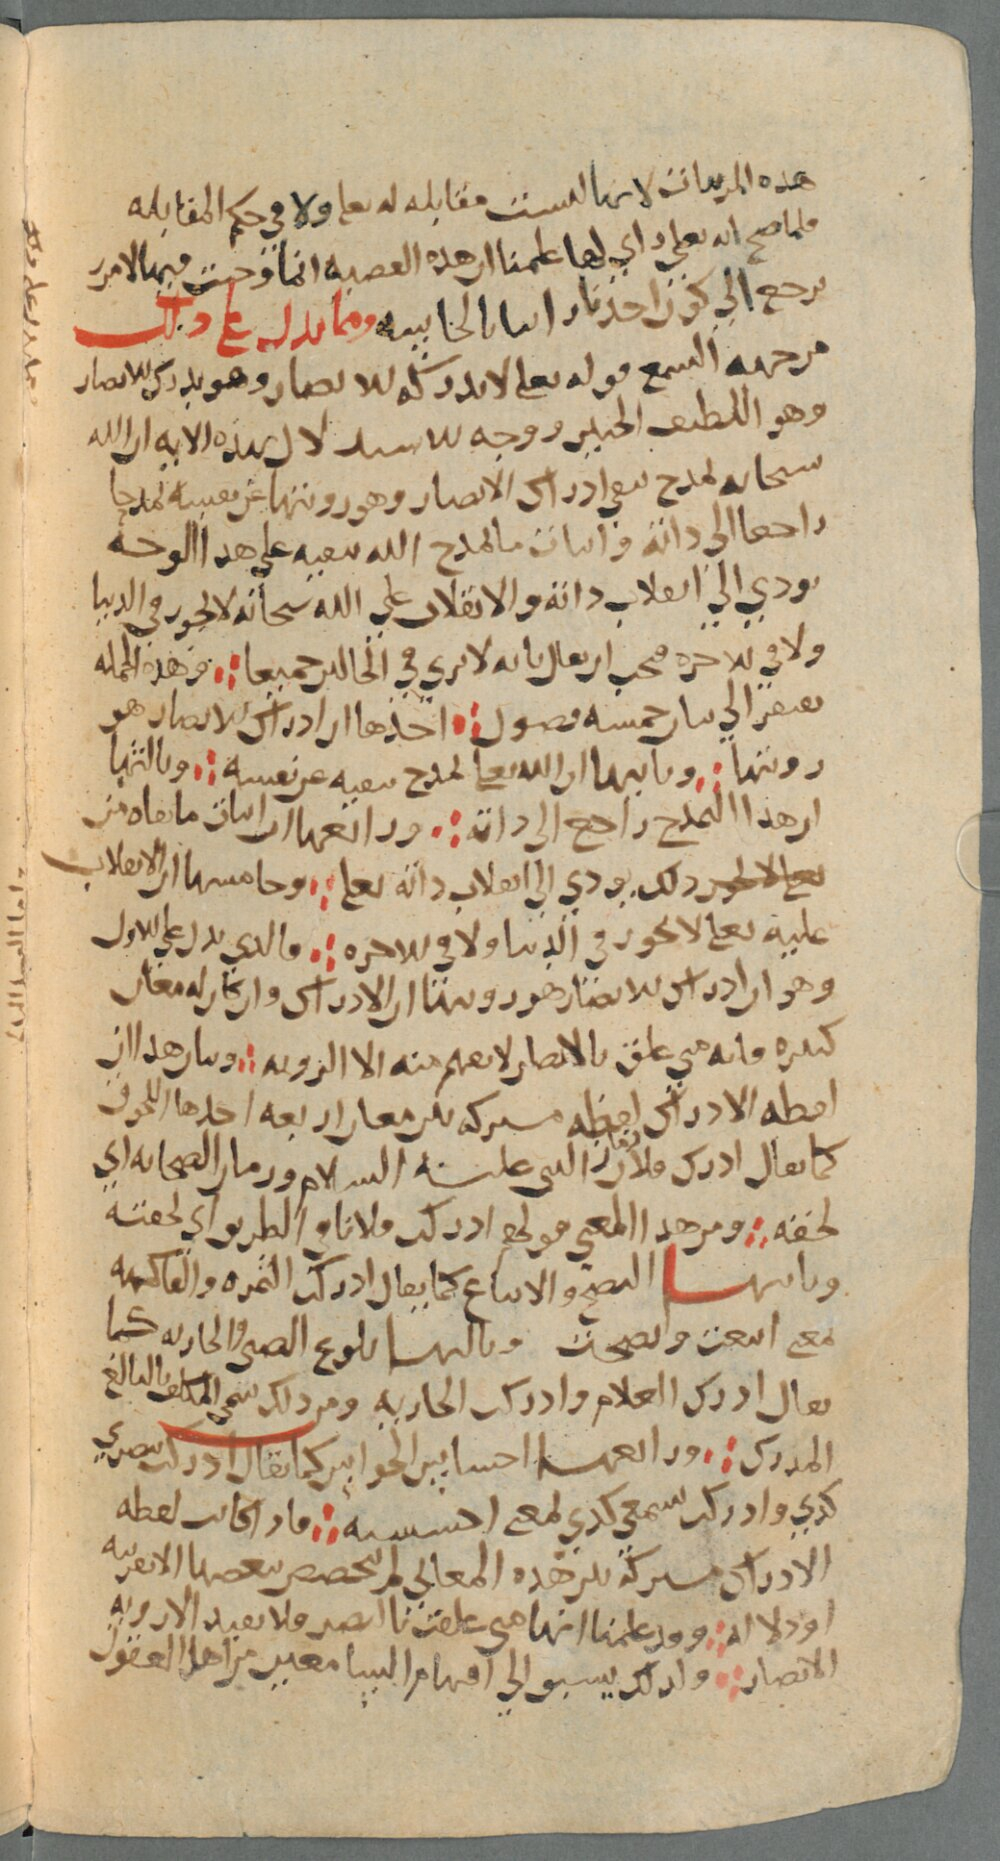 هذه المرئيات لانها ليست مقابلة له تعلى ولا في حكم المقابله
فلما صح انه تعلى راي لها علمنا ان هذه القضية انما وجبت فيها لامر
يرجع الي كون احدنا رائيا بالحاسه ومما يدل على ذلك
من جهه السمع قوله تعلى لا تدركه الابصار وهو يدرك الابصار
وهو اللطيف الخبير ووجه الاستدلال بهذه الايه ان الله
سبحانه تمدح بنفي ادراك الابصار وهو رويتها عن نفسه تمدحا
راجعا الي ذاته واثبات ما تمدح الله بنفيه على هذا الوجه
يودي الي انقلاب ذاته والانقلاب علي الله سبحانه لا يجوز في الدنيا
ولا في الاخره فيجب ان يقال بانه لا يرى في الحالين جميعا فهذه الجمله
تفتقر الي بيان خمسه فصول احدها ان ادراك الابصار هو
رويتها وثانيها ان الله تعلى تمدح بنفيه عن نفسه وثالثها
ان هذا التمدح راجع الى ذاته ورابعها ان اثبات ما نفاه من
ذلك يودي الى انقلاب ذاته تعلى وخامسها ان الانقلاب
عليه تعلى لا يجوز في الدنيا ولا في الاخره فالذي يدل على الاول
وهو ان ادراك الابصار هو رويتها ان الادراك وان كان له معان
كثيره فانه متى علق بالابصار لا يفهم منه الا الرويه وبيان هذا ان
لفظه الادراك لفظه مشتركه بين معان اربعه احدها اللحوق
كما يقال ادرك فلان زمان النبي عليه السلام وزمان الصحابه اي
لحقه ومن هذا المعنى قولهم ادركت فلانا في الطريق اي لحقته
وثانيها النضج والايناع كما يقال ادركت الثمره والفاكهه
بمعنى اينعت ونضجت وثالثها بلوغ الصبي والجاريه كما
يقال ادرك الغلام وادركت الجاريه ومن ذلك سمي المكلف بالبالغ
المدرك ورابعها احساس الحواس كما يقال ادرك بصري
كذي وادركت سمعي كذي بمعنى احسسته فاذا كانت لفظه
الادراك مشتركة بين هذه المعاني لم تختص ببعضها الا بقرينه
او دلاله وقد علمنا انها متى علقت بالبصر فلا يفيد الا رويه
الابصار وذلك يسبق الي افهام السامعين من اهل العقول